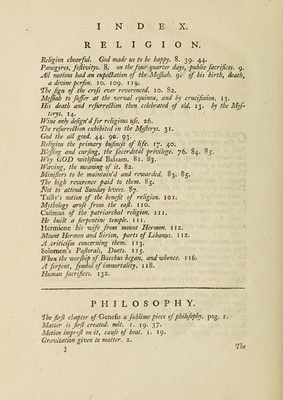 INDEX.
RELIGION.
Religion chearful. God made us to be happy. 8. 39. 44.
Panegyrei, festivitys. 8. on the four quarter days, public sacrifices. 9.
All nations had an expectation of the Messiah. 9. of his birth, death,
a divine person. 10. 109. 119.
The sign of the cross ever reverenced. 10. 82.
Messiah to suffer at the vernal equinox, and by crucifixion. 13.
His death and resurrection then celebrated of old. 13. by the Mys-
terys. 14.
Wine only design'd for religious use. 26.
The resurrection exhibited in the Mysterys. 31.
God the all good. 44. 90. 93.
Religion the primary business of life. 17. 40.
Blessing and cursing, the sacerdotal privilege. 76. 84. 85.
Why GOD withstood Balaam. 81. 83.
Waving, the meaning of it. 82.
Ministers to be maintain'd and rewarded. 83. 85.
The high reverence paid to them. 85.
Not to attend Sunday levees. 87.
Tully's notion of the benefit of religion. 101.
Mythology arose from the east. 110.
Cadmus of the patriarchal religion. 111.
He built a serpentine temple. 111.
Hermione his wife from mount Hermon. 112.
Mount Hermon and Sirion, parts of Libanus. 112.
A criticism concerning them. 113.
Solomon's Pastorals, Duets. 115.
When the worship of Bacchus began, and whence. 116.
A serpent, symbol of immortality. 118.
Human sacrifices. 132.
PHILOSOPHY.
The first chapter of Genesis a sublime piece of philosophy. pag. 1.
Matter is first created. mist. 1. 19. 37.
Motion imprest on it, cause of heat. 1. 19.
Gravitation given to matter. 2.
3
The